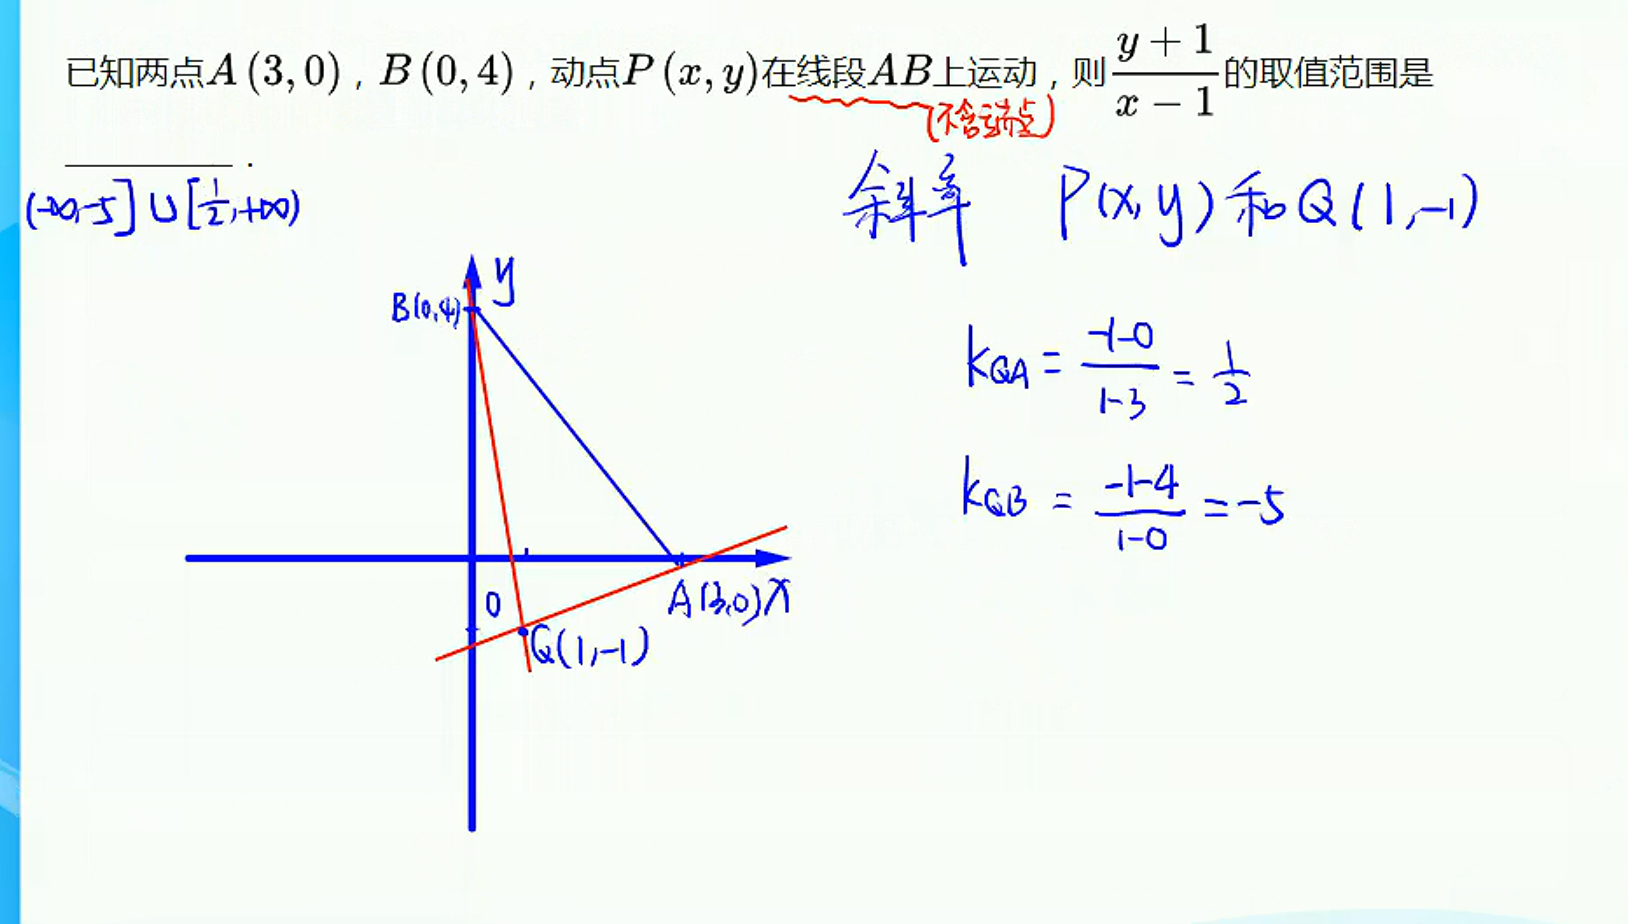 已知两点A(3,0)，B(0,4)，动点P(x,y)在线段AB上运动，则\frac{y+1}{x-1}的取值范围是
(不含端点)
________ .
(-∞,-5]∪[\frac{1}{2},+∞)
斜率 P(x,y)和Q(1,-1)
y
B(0,4)
k_{QA} = \frac{-1-0}{1-3} = \frac{1}{2}
k_{QB} = \frac{-1-4}{1-0} = -5
0
A(3,0) X
Q(1,-1)